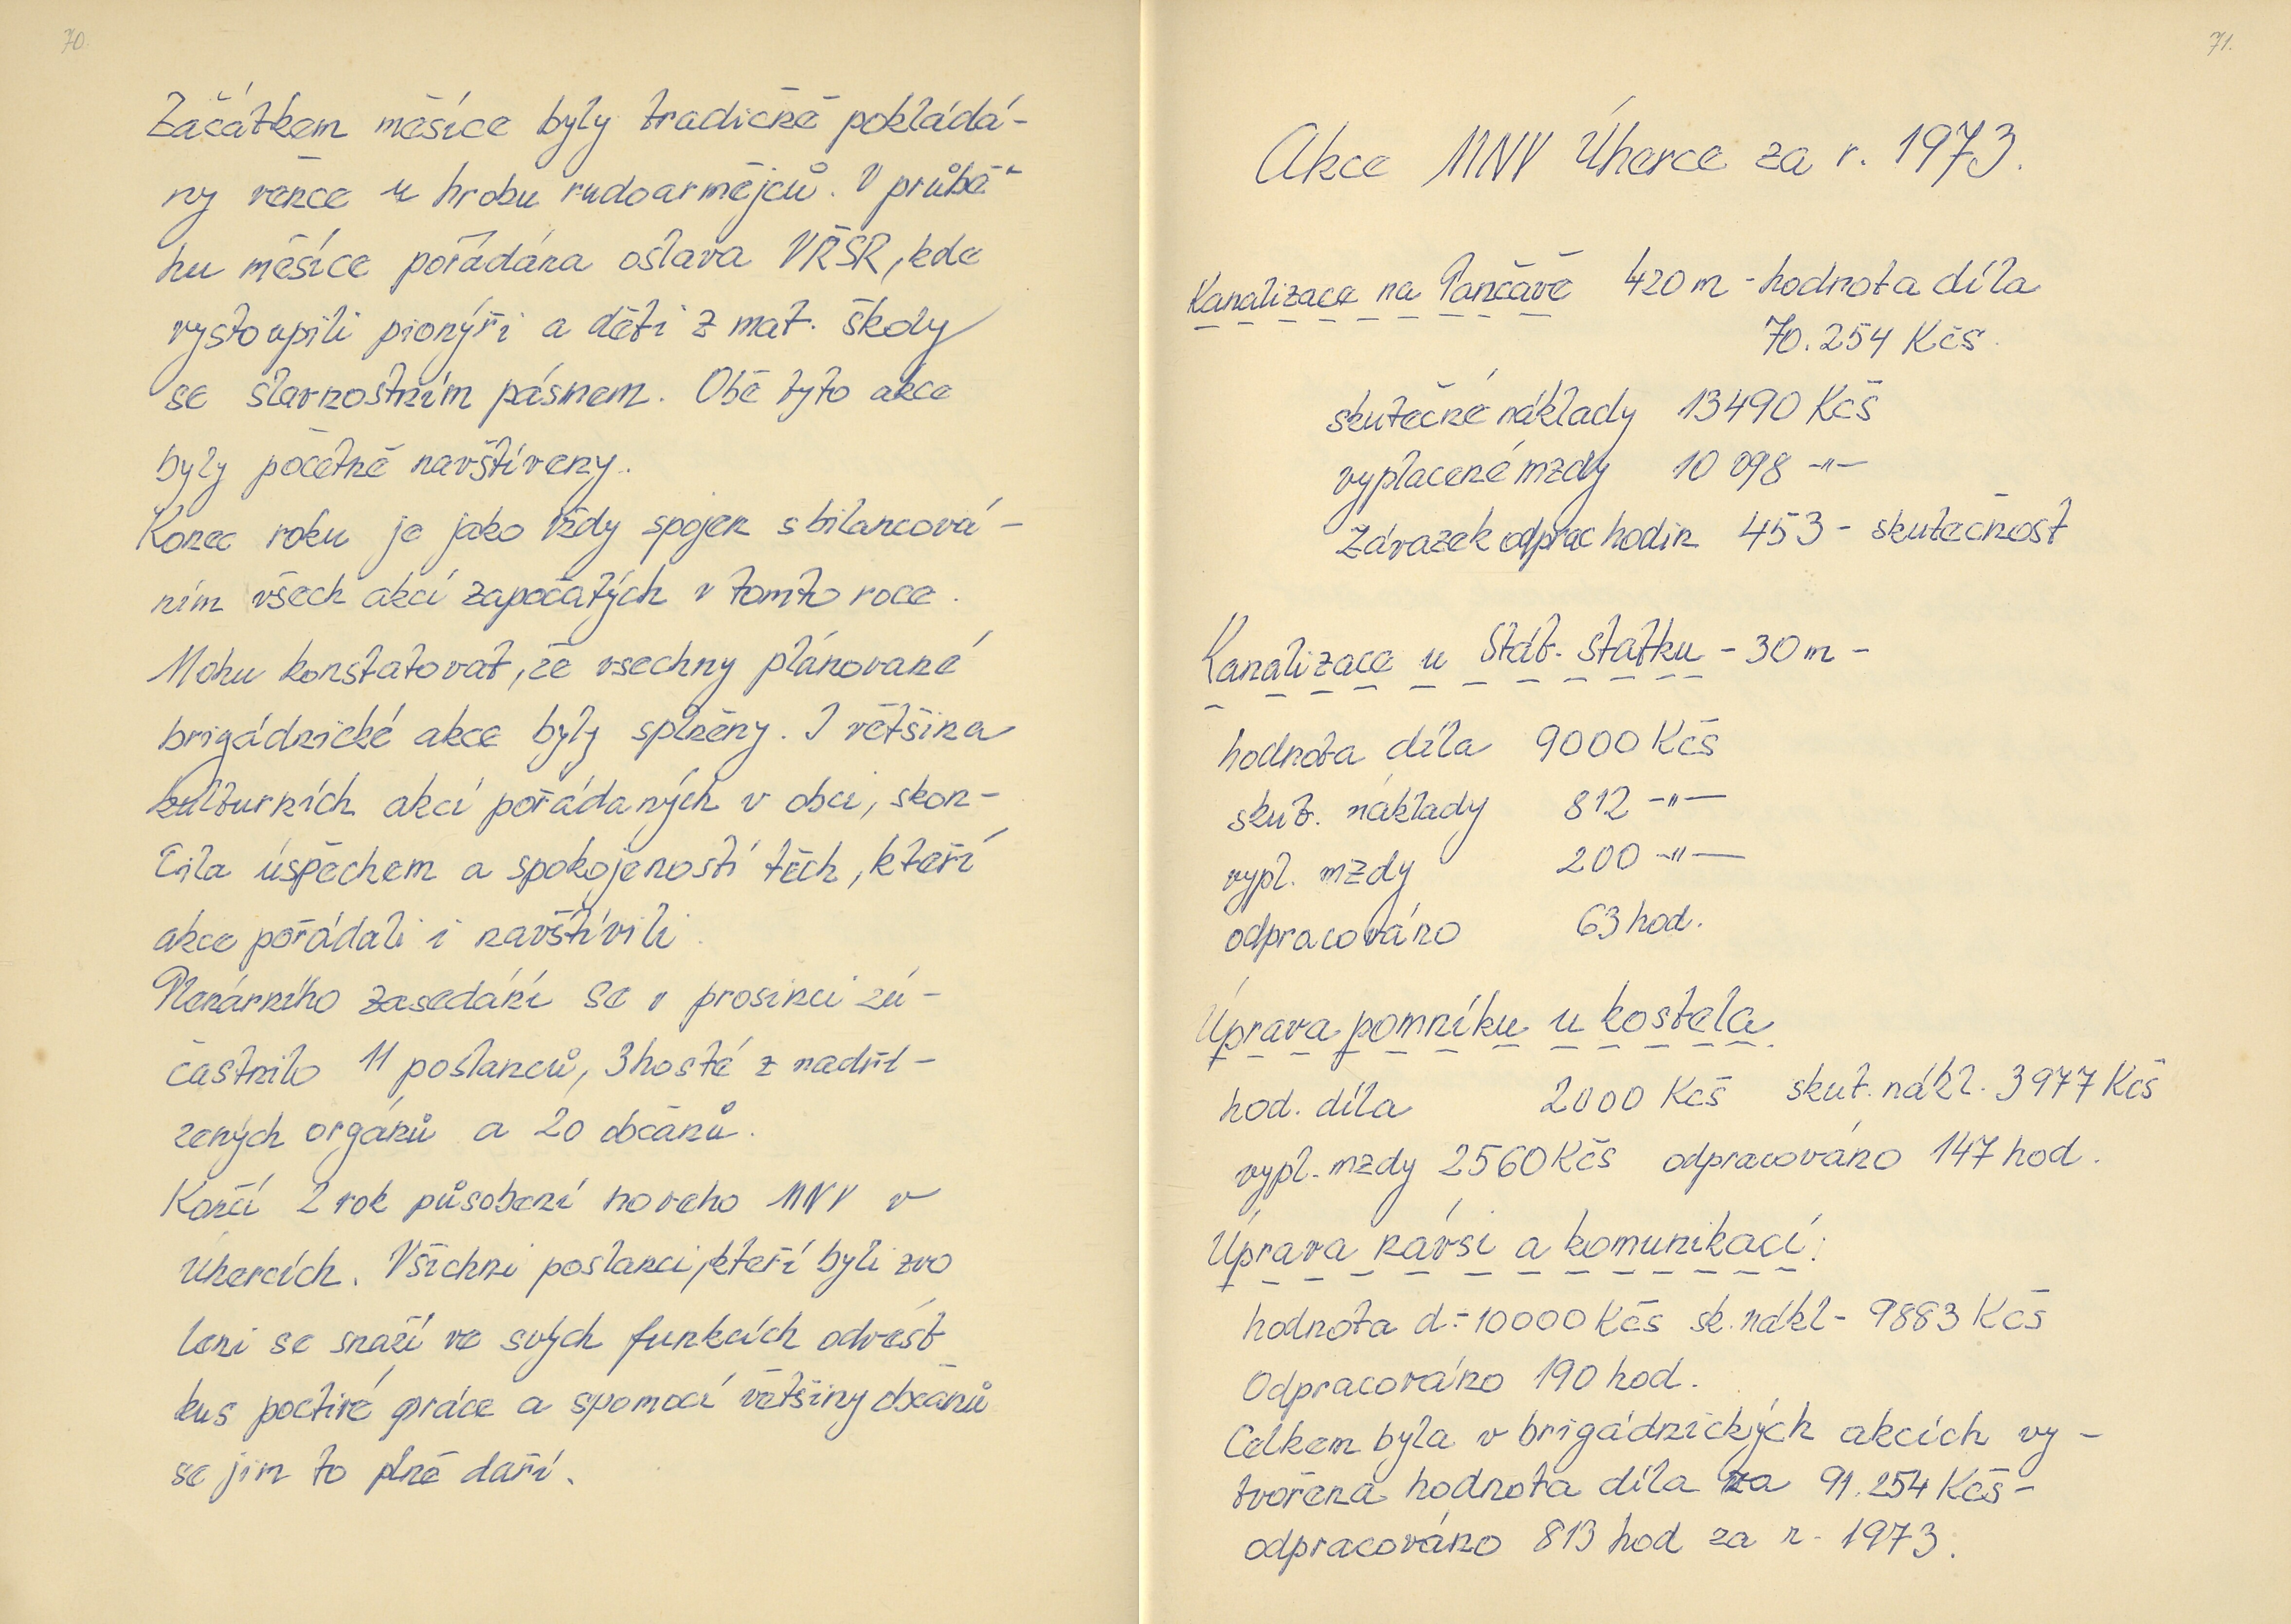 70.
Začátkem měsíce byly tradičně pokládá-
ny věnce u hrobu rudoarmějců. V průbě-
hu měsíce pořádána oslava VŘSR, kde
vystoupili pionýři a děti z mat. školy
se slavnostním pásmem. Obě tyto akce
byly početně navštíveny.
Konec roku je jako vždy spojen s bilancová-
ním všech akcí započatých v tomto roce.
Mohu konstatovat, že všechny plánované
brigádnické akce byly splněny. I většina
kulturních akcí pořádaných v obci, skon-
čila úspěchem a spokojeností těch, kteří
akce pořádali i navštívili.
Plenárního zasedání se v prosinci zú-
častnilo 11 poslanců, 3 hosté z nadří-
zených orgánů a 20 občanů.
Končí 2 rok působení nového MNV v
Úhercích. Všichni poslanci, kteří byli zvo
leni se snaží ve svých funkcích odvést
kus poctivé práce a spomocí většiny občanů
se jim to plně daří.
71.
Akce MNV Úherce za r. 1973.
Kanalizace na Pančavě 420 m - hodnota díla
70.254 Kčs.
skutečné náklady 13490 Kčs
vyplacené mzdy 10 098 -"-
Závazek odprac hodin 453 - skutečnost
Kanalizace u Stát. statku - 30 m -
hodnota díla 9000 Kčs
skut. náklady 812 -"-
vypl. mzdy 200 -"-
odpracováno 63 hod.
Úprava pomníku u kostela
hod. díla 2000 Kčs skut. nákl. 3977 Kčs
vypl. mzdy 2560 Kčs odpracováno 147 hod.
Úprava návsi a komunikací:
hodnota d. - 10000 Kčs sk. nákl - 9883 Kčs
Odpracováno 190 hod.
Celkem byla v brigádnických akcích vy-
tvořena hodnota díla za 91.254 Kčs -
odpracováno 813 hod za r. 1973.